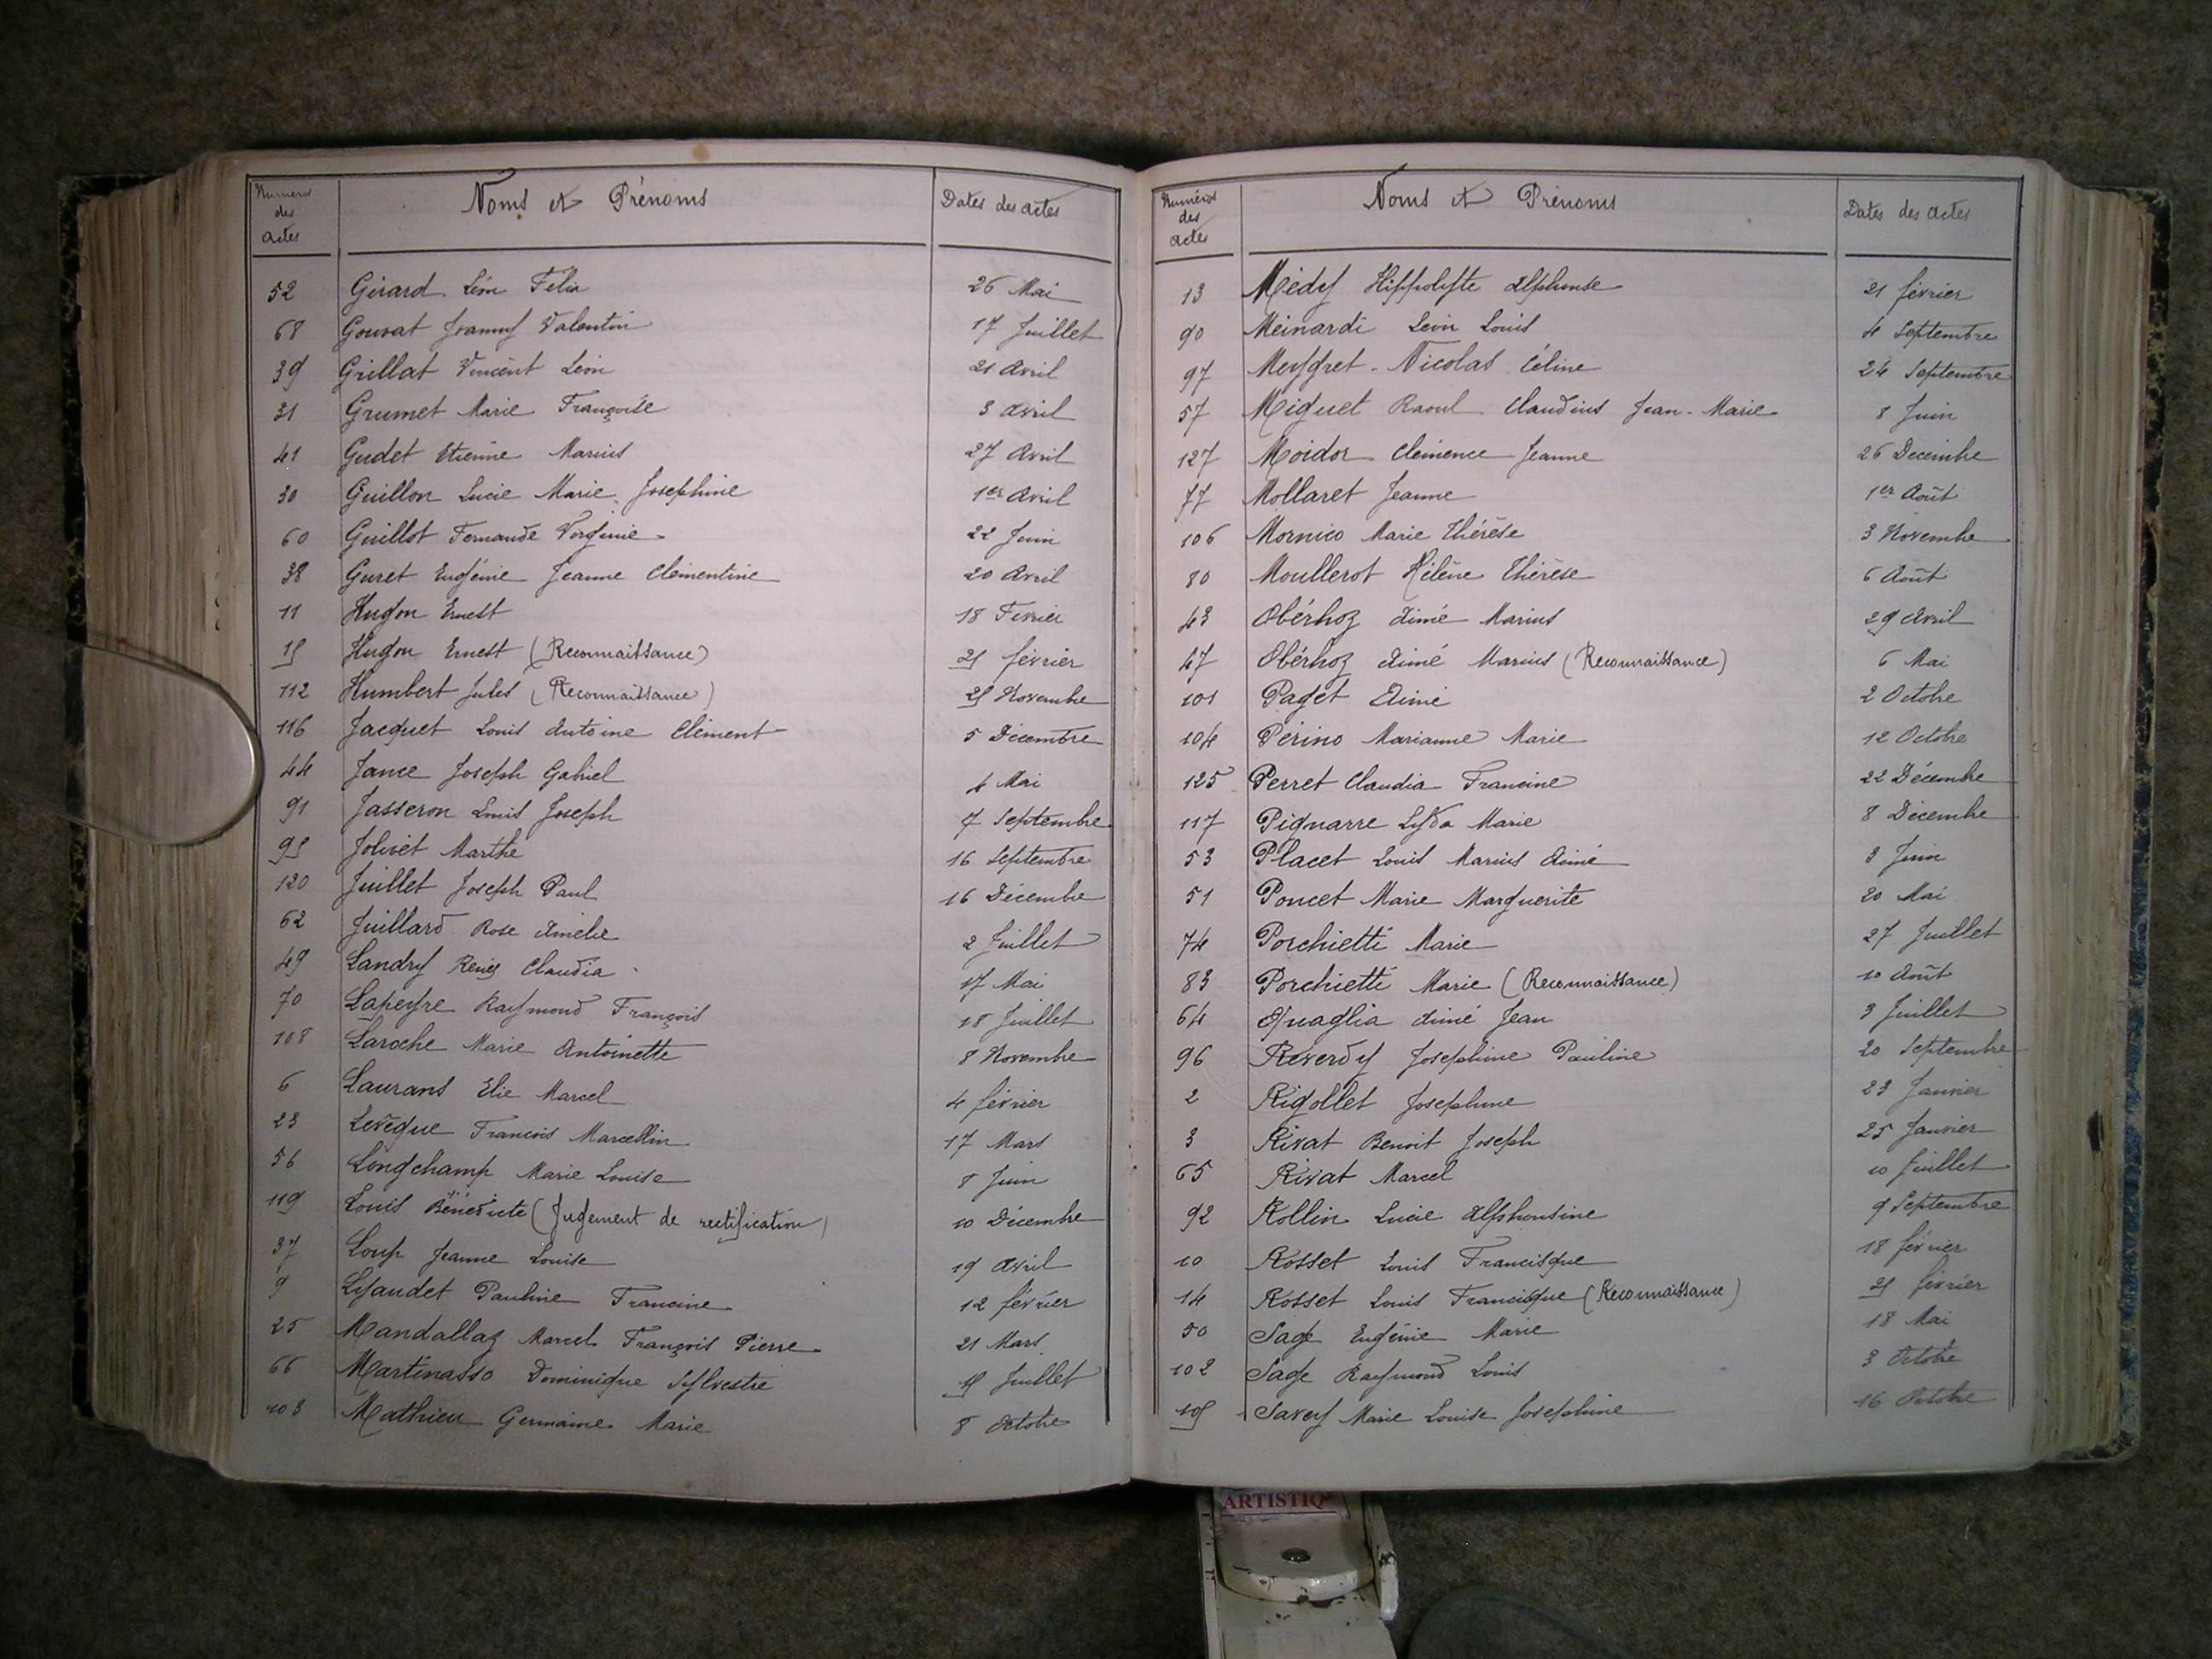 Numéros des actes Noms et Prénoms Dates des actes
52 Girard Léon Félix 26 Mai
68 Gouvat Joanny Valentin 17 Juillet
39 Grillat Vincent Léon 21 Avril
31 Grumet Marie Françoise 3 Avril
41 Gudet Etienne Marius 27 Avril
30 Guillon Lucie Marie Josephine 1er Avril
60 Guillot Fernande Virginie 22 Juin
38 Guret Eugénie Jeanne Clémentine 20 Avril
11 Hugon Ernest 18 Février
15 Hugon Ernest (Reconnaissance) 25 février
112 Humbert Jules (Reconnaissance) 25 Novembre
116 Jacquet Louis Antoine Clément 5 Décembre
44 Jance Joseph Gabriel 4 Mai
91 Jasseron Louis Joseph 7 Septembre
95 Jolivet Marthe 16 Septembre
120 Juillet Joseph Paul 16 Décembre
62 Juillard Rose Amélie 2 Juillet
49 Landry Claudia 17 Mai
70 Lapeyre Raymond François 18 Juillet
108 Laroche Marie Antoinette 8 Novembre
6 Laurans Elie Marcel 4 février
23 Levêque Francois Marcellin 17 Mars
56 Longchamp Marie Louise 8 Juin
119 Louis Bénédicte (Jugement de rectification) 10 Décembre
37 Loup Jeanne Louise 19 Avril
9 Lyaudet Pauline Francine 12 février
25 Mandallaz Marcel François Pierre 21 Mars
66 Martinasso Dominique Sylvestre 15 Juillet
103 Mathieu Germaine Marie 8 Octobre
Numéros des actes Noms et Prénoms Dates des actes
13 Médy Hippolyte Alphonse 21 février
90 Meinardi Léon Louis 4 Septembre
97 Meygret-Nicolas Céline 24 Septembre
57 Miguet Raoul Claudius Jean-Marie 8 Juin
127 Moidor Clémence Jeanne 26 Décembre
77 Mollaret Jeanne 1er Août
106 Mornico Marie Thérèse 3 Novembre
80 Moullerot Hélène Thérèse 6 Août
43 Obérhoz Aimé Marius 29 Avril
47 Obérhoz Aimé Marius (Reconnaissance) 6 Mai
101 Paget Aimé 2 Octobre
104 Périno Marianne Marie 12 Octobre
125 Perret Claudia Francine 22 Décembre
117 Piquarre Lyda Marie 8 Décembre
53 Placet Louis Marius Aimé 3 Juin
51 Poncet Marie Marguerite 20 Mai
74 Porchietti Marie 27 Juillet
83 Porchietti Marie (Reconnaissance) 10 Août
64 Quaglia Aimé Jean 9 Juillet
96 Reverdy Josephine Pauline 20 Septembre
2 Rigollet Josephine 23 Janvier
3 Rivat Benoit Joseph 25 Janvier
65 Rivat Marcel 10 Juillet
92 Rollin Lucie Alphonsine 9 Septembre
10 Rosset Louis Francisque 18 février
14 Rosset Louis Francisque (Reconnaissance) 25 février
50 Sage Eugénie Marie 18 Mai
102 Sage Raymond Louis 3 Octobre
105 Savey Marie Louise Josephine 16 Octobre
ARTISTIQ